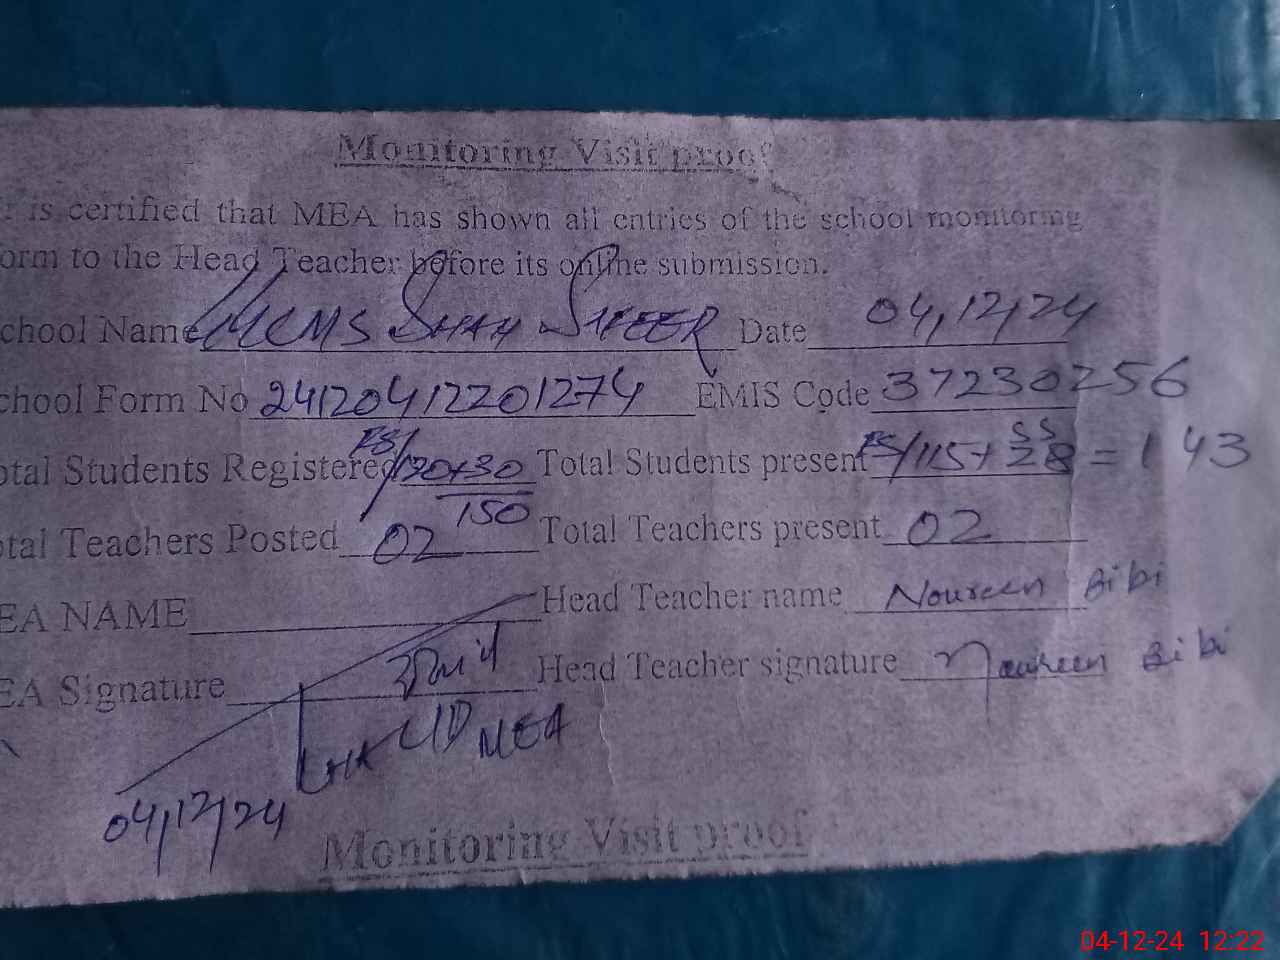 Monitoring Visit proof
It is certified that MEA has shown all entries of the school monitoring
orm to the Head Teacher before its online submission.
chool Name MCMS SHAH SAFEER Date 04,12,24
chool Form No 24120412201274 EMIS Code 37230256
otal Students Registered PS/120+30 Total Students present PS/115+ SS 28 = 143
150
otal Teachers Posted 02 Total Teachers present 02
EA NAME Head Teacher name Noureen Bibi
EA Signature Head Teacher signature Noureen Bibi
MEA
04,12,24
Monitoring Visit proof
04-12-24 12:22